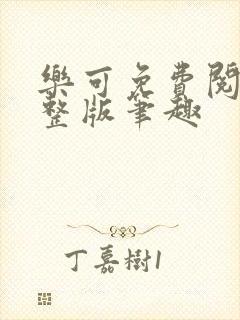 樂可免費閱
整版筆趣
丁嘉樹1